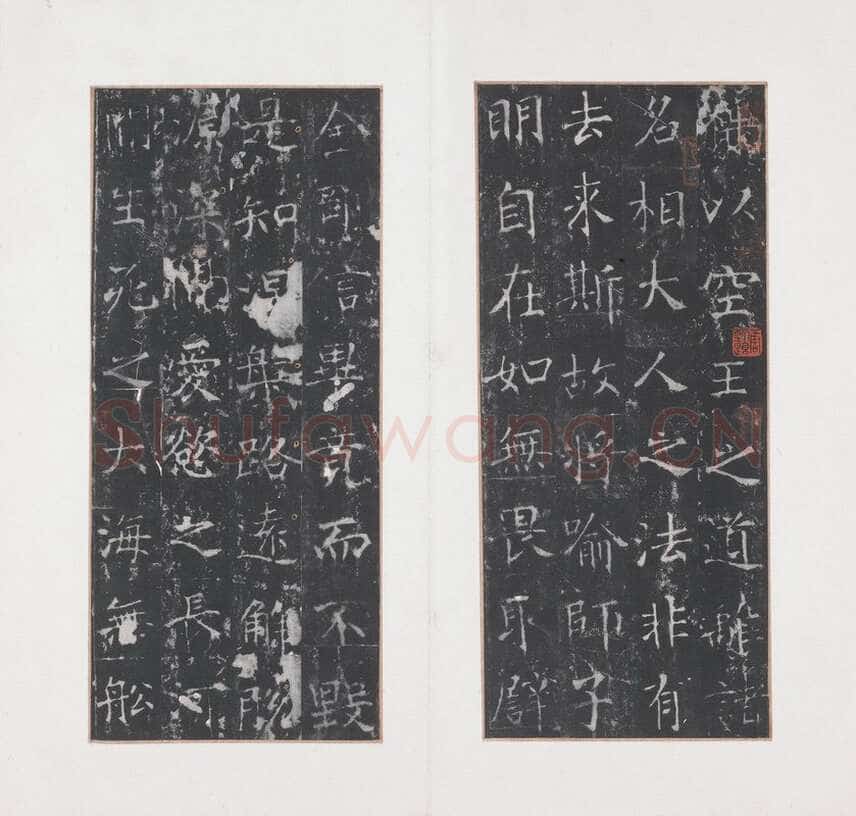 竊以空王之道離諸
名相大人之法非有
去來斯故將喻師子
明自在如無畏取譬
金剛信畢竟而不毀
是知涅槃路遠解脫
源深隔愛慾之長河
間生死之大海無舩
Shufawang.CN